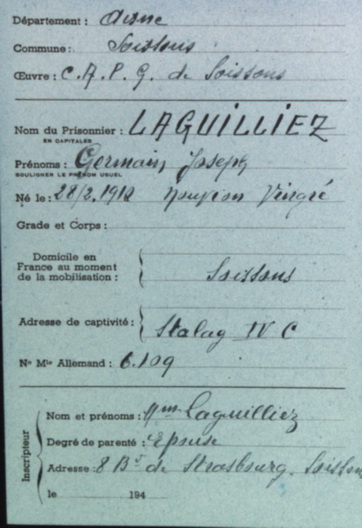 Département : Aisne
Commune : Soissons
Œuvre : C.A.P.G. de Soissons
Nom du Prisonnier : LAGUILLIEZ
EN CAPITALES
Prénoms : Germain Joseph
SOULIGNER LE PRÉNOM USUEL
Né le : 28/2.1912 Nouvion Vingré
Grade et Corps :
Domicile en
France au moment
de la mobilisation : Soissons
Adresse de captivité : Stalag IV C
N° Mle Allemand : 6.109
Inscripteur
Nom et prénoms : Mme Laguilliez
Degré de parenté : Epouse
Adresse : 8 Bd de Strasbourg. Soissons
le 194